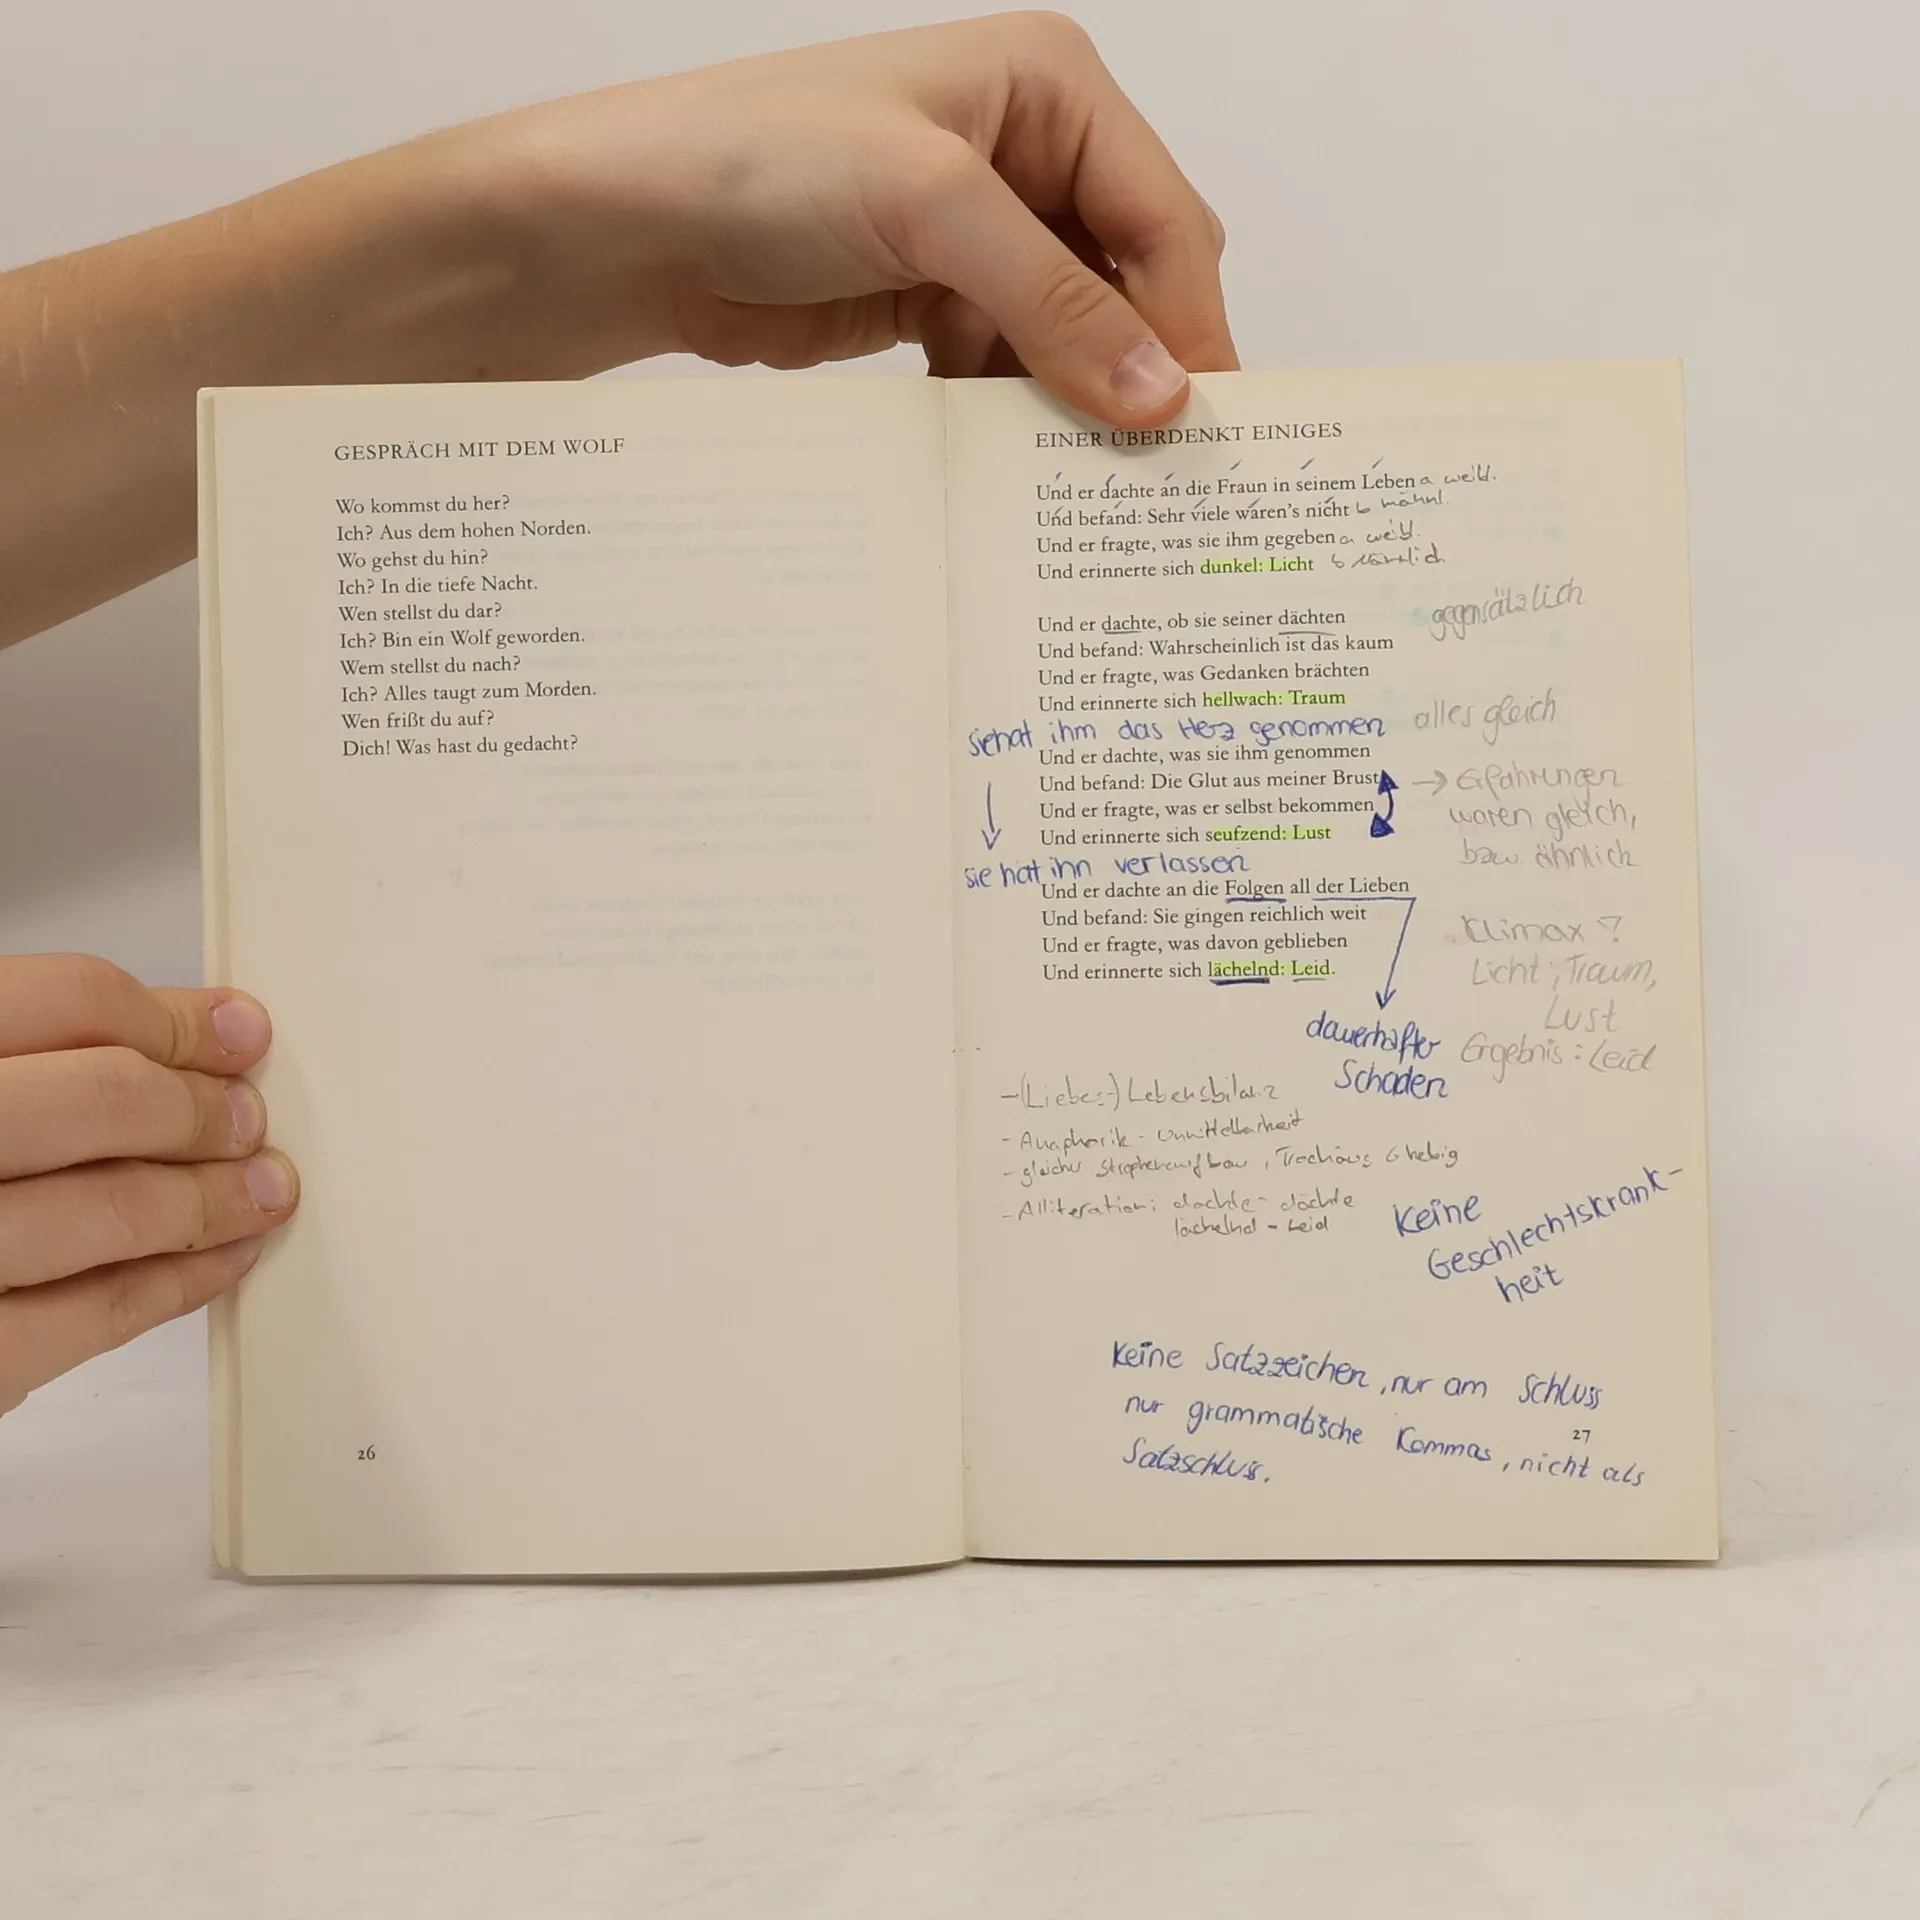 GESPRÄCH MIT DEM WOLF
Wo kommst du her?
Ich? Aus dem hohen Norden.
Wo gehst du hin?
Ich? In die tiefe Nacht.
Wen stellst du dar?
Ich? Bin ein Wolf geworden.
Wem stellst du nach?
Ich? Alles taugt zum Morden.
Wen frißt du auf?
Dich! Was hast du gedacht?
26
EINER ÜBERDENKT EINIGES
Und er dachte an die Fraun in seinem Leben a weibl.
Und befand: Sehr viele waren's nicht b männl.
Und er fragte, was sie ihm gegeben a weibl.
Und erinnerte sich dunkel: Licht b
gegensätzlich
Und er dachte, ob sie seiner dächten
Und befand: Wahrscheinlich ist das kaum
Und er fragte, was Gedanken brächten
Und erinnerte sich hellwach: Traum
sie hat ihm das Herz genommen
alles gleich
Und er dachte, was sie ihm genommen
Und befand: Die Glut aus meiner Brust
Und er fragte, was er selbst bekommen
Und erinnerte sich seufzend: Lust
→ Erfahrungen
waren gleich,
bzw. ähnlich
sie hat ihn verlassen
Und er dachte an die Folgen all der Lieben
Und befand: Sie gingen reichlich weit
Und er fragte, was davon geblieben
Und erinnerte sich lächelnd: Leid.
Klimax ?
Licht, Traum,
Lust
Ergebnis: Leid
dauerhafter
Schaden
- (Liebes-) Lebensbilanz
- Anaphorik - Unmittelbarkeit
- gleicher Strophenaufbau, Trochäus 6 hebig
- Alliteration: dachte - dächte
lächelnd - Leid
Keine
Geschlechtskrank-
heit
Keine Satzzeichen, nur am Schluss
nur grammatische Kommas, nicht als
Satzschluss.
27